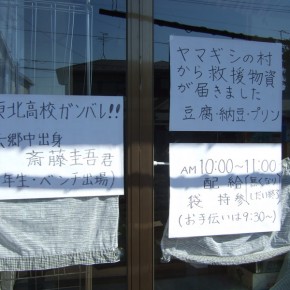 東北高校ガンバレ!!
郷中出身
斎藤圭吾君
年生・ベンチ出場)
ヤマギシの村
から救援物資
が届きました
豆腐・納豆・プリン
AM 10:00~11:00
配給
袋持参
(お手伝いは9:30~)